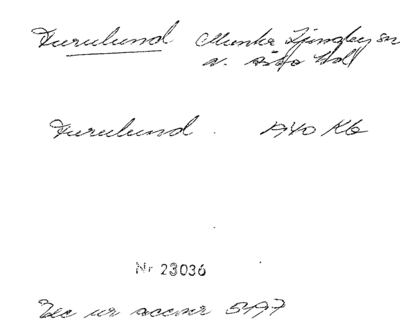 Furulund Munka Ljungby sn
N. Åsbo hd
Furulund . 1940 Kb
Nr 23036
Rec ur accessr 5/47